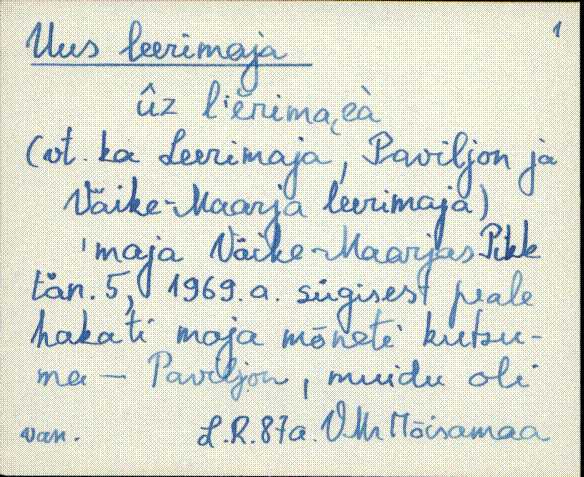 1
Uus leerimaja
ûz l'ērima
(vt. ka Leerimaja, Paviljon ja
Väike-Maarja leerimaja)
'maja Väike-Maarjas Pikk
tän. 5, 1969. a. sügisest peale
hakati maja mõneti kutsu-
ma — Paviljon, muidu oli
van. L.R. 87a. VMr Mõisamaa